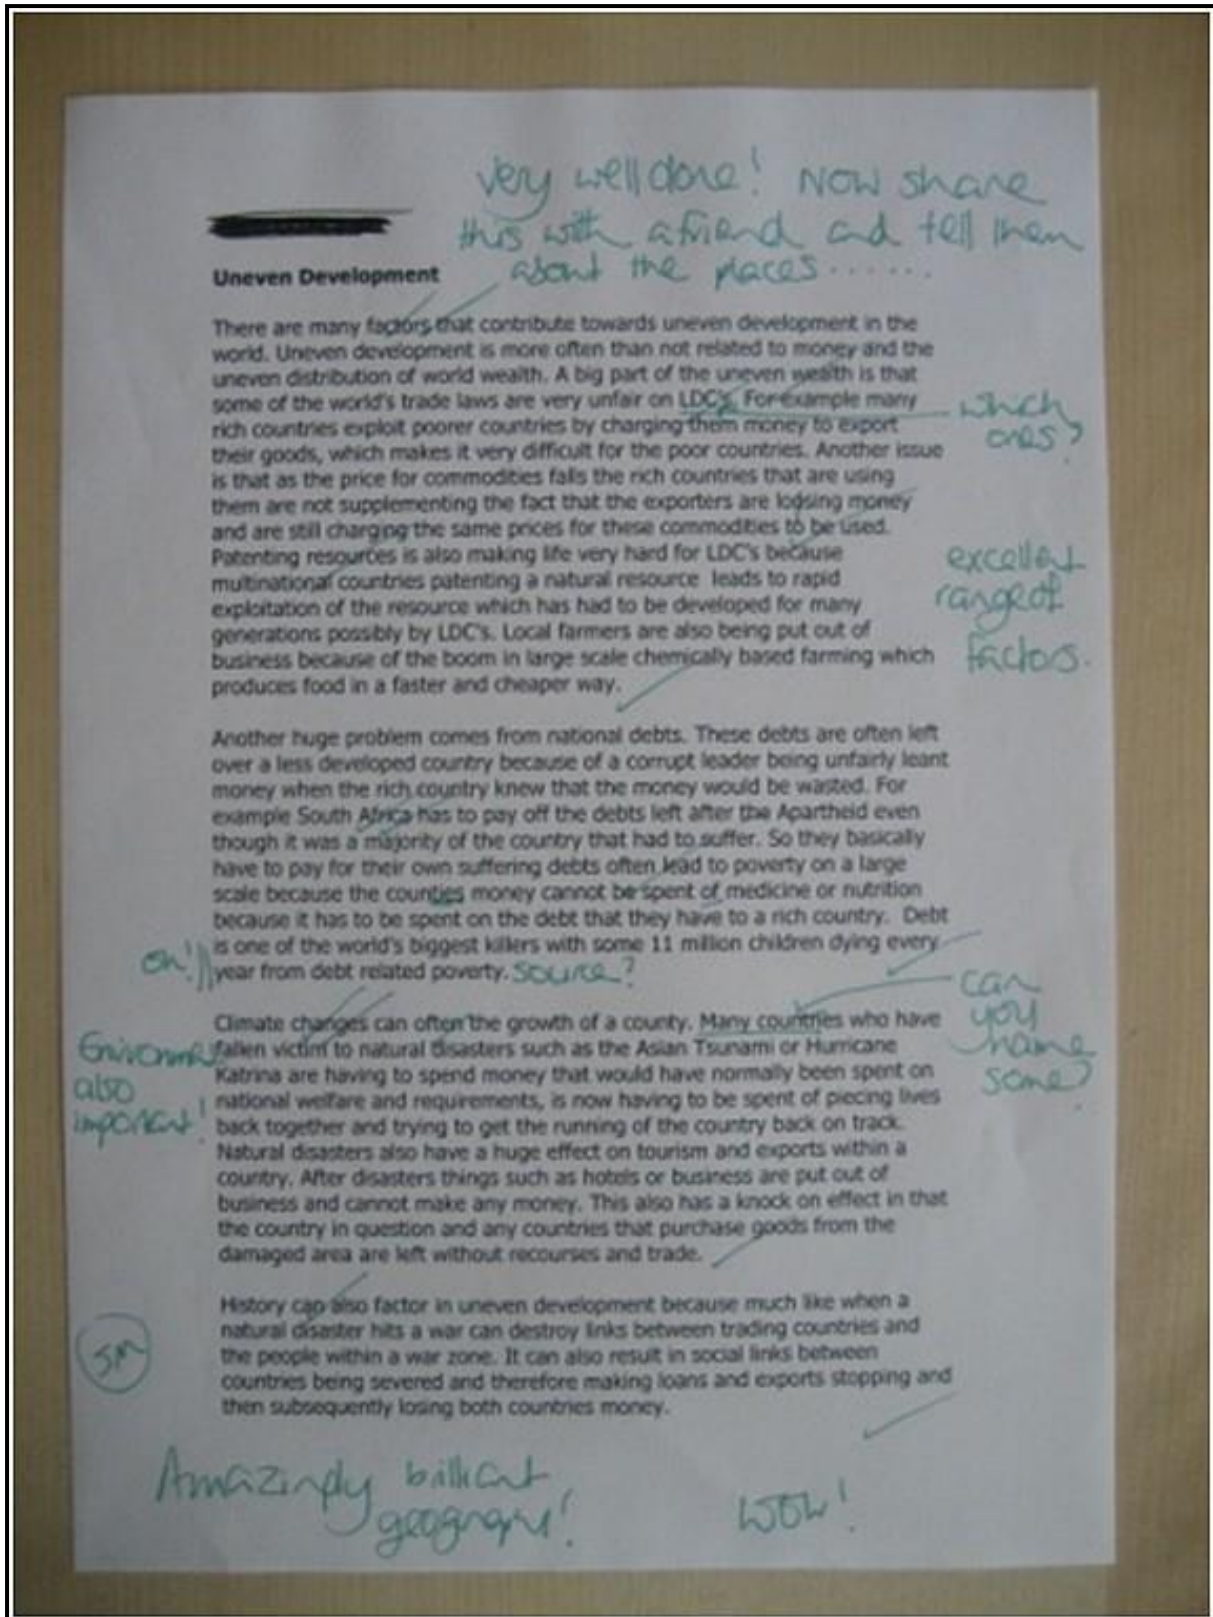 very well done! Now share
this with a friend and tell them
about the places.......
Uneven Development
There are many factors that contribute towards uneven development in the
world. Uneven development is more often than not related to money and the
uneven distribution of world wealth. A big part of the uneven wealth is that
some of the world's trade laws are very unfair on LDC's. For example many
which
ones?
rich countries exploit poorer countries by charging them money to export
their goods, which makes it very difficult for the poor countries. Another issue
is that as the price for commodities falls the rich countries that are using
them are not supplementing the fact that the exporters are loosing money
and are still charging the same prices for these commodities to be used.
Patenting resources is also making life very hard for LDC's because
multinational countries patenting a natural resource leads to rapid
exploitation of the resource which has had to be developed for many
generations possibly by LDC's. Local farmers are also being put out of
business because of the boom in large scale chemically based farming which
produces food in a faster and cheaper way.
excellent
range of
factors.
Another huge problem comes from national debts. These debts are often left
over a less developed country because of a corrupt leader being unfairly leant
money when the rich country knew that the money would be wasted. For
example South Africa has to pay off the debts left after the Apartheid even
though it was a majority of the country that had to suffer. So they basically
have to pay for their own suffering debts often lead to poverty on a large
scale because the counties money cannot be spent of medicine or nutrition
because it has to be spent on the debt that they have to a rich country. Debt
is one of the world's biggest killers with some 11 million children dying every
year from debt related poverty. source?
oh!
Climate changes can often the growth of a county. Many countries who have
fallen victim to natural disasters such as the Asian Tsunami or Hurricane
Katrina are having to spend money that would have normally been spent on
national welfare and requirements, is now having to be spent of piecing lives
back together and trying to get the running of the country back on track.
Natural disasters also have a huge effect on tourism and exports within a
country. After disasters things such as hotels or business are put out of
business and cannot make any money. This also has a knock on effect in that
the country in question and any countries that purchase goods from the
damaged area are left without recourses and trade.
can
you
name
some?
also
important!
History can also factor in uneven development because much like when a
natural disaster hits a war can destroy links between trading countries and
the people within a war zone. It can also result in social links between
countries being severed and therefore making loans and exports stopping and
then subsequently losing both countries money.
Amazingly brilliant
geography!
WOW!